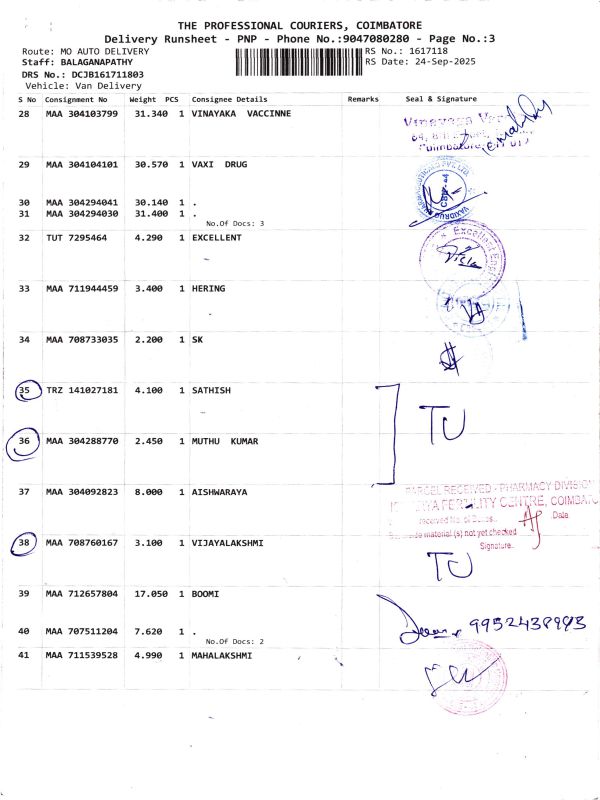 THE PROFESSIONAL COURIERS, COIMBATORE
Delivery Runsheet - PNP - Phone No.:9047080280 - Page No.:3
Route: MO AUTO DELIVERY RS No.: 1617118
Staff: BALAGANAPATHY RS Date: 24-Sep-2025
DRS No.: DCJB161711803
Vehicle: Van Delivery
S No Consignment No Weight PCS Consignee Details Remarks Seal & Signature
28 MAA 304103799 31.340 1 VINAYAKA VACCINNE
29 MAA 304104101 30.570 1 VAXI DRUG
30 MAA 304294041 30.140 1 .
31 MAA 304294030 31.400 1 .
No.Of Docs: 3
32 TUT 7295464 4.290 1 EXCELLENT
Excellent
33 MAA 711944459 3.400 1 HERING
34 MAA 708733035 2.200 1 SK
35 TRZ 141027181 4.100 1 SATHISH
TU
36 MAA 304288770 2.450 1 MUTHU KUMAR
37 MAA 304092823 8.000 1 AISHWARAYA
PARCEL RECEIVED - PHARMACY DIVISION
FERTILITY CENTRE, COIMBATO
received No. of Boxes. Date.
material (s) not yet checked
Signature.
38 MAA 708760167 3.100 1 VIJAYALAKSHMI
TU
39 MAA 712657804 17.050 1 BOOMI
9952438993
40 MAA 707511204 7.620 1 .
No.Of Docs: 2
41 MAA 711539528 4.990 1 MAHALAKSHMI